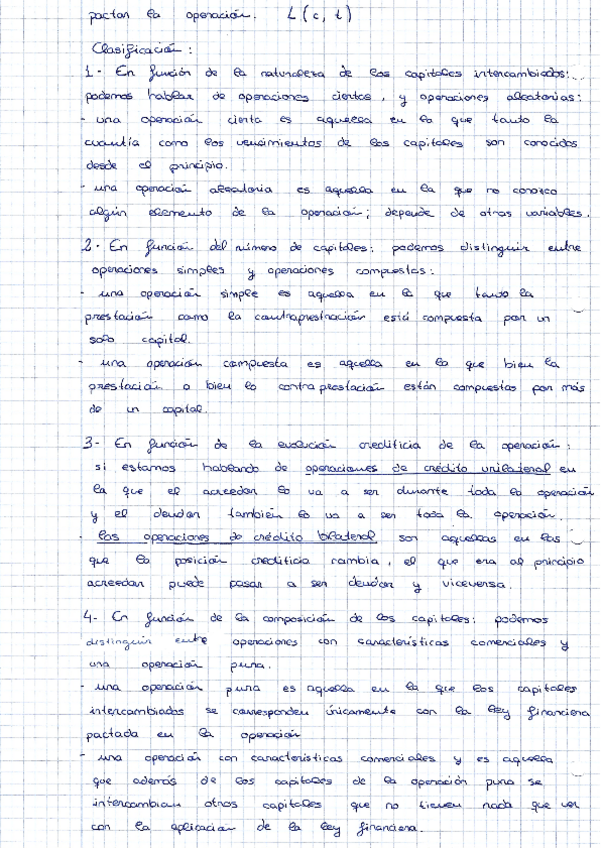 pactan la operación. L(c, t)
Clasificación:
1- En función de la naturaleza de los capitales intercambiados:
podemos hablar de operaciones ciertas, y operaciones aleatorias:
- una operación cierta es aquella en la que tanto la
cuantía como los vencimientos de los capitales son conocidos
desde el principio.
- una operación aleatoria es aquella en la que no conozco
algún elemento de la operación; depende de otras variables.
2- En función del número de capitales: podemos distinguir entre
operaciones simples y operaciones compuestas:
- una operación simple es aquella en la que tanto la
prestación como la contraprestación está compuesta por un
solo capital.
- una operación compuesta es aquella en la que bien la
prestación o bien la contraprestación están compuestas por más
de un capital.
3- En función de la evolución crediticia de la operación:
si estamos hablando de operaciones de crédito unilateral en
la que el acreedor lo va a ser durante toda la operación
y el deudor también lo va a ser toda la operación.
- las operaciones de crédito bilateral son aquellas en las
que la posición crediticia cambia, el que era al principio
acreedor puede pasar a ser deudor y viceversa.
4- En función de la composición de los capitales: podemos
distinguir entre operaciones con características comerciales y
una operación pura.
- una operación pura es aquella en la que los capitales
intercambiados se corresponden únicamente con la ley financiera
pactada en la operación
- una operación con características comerciales y es aquella
que además de los capitales de la operación pura se
intercambian otros capitales que no tienen nada que ver
con la aplicación de la ley financiera.